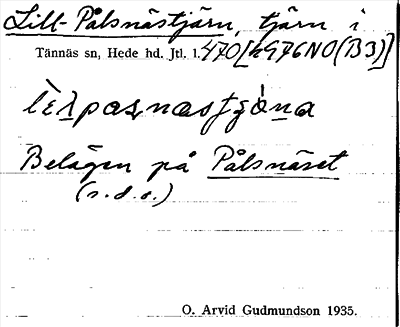 Lill-Pålsnästjärn, tjärn i
Tännäs sn, Hede hd. Jtl. l. 470[h976NO(B3)]
Belägen på Pålsnäset
(s.d.o.)
O. Arvid Gudmundson 1935.